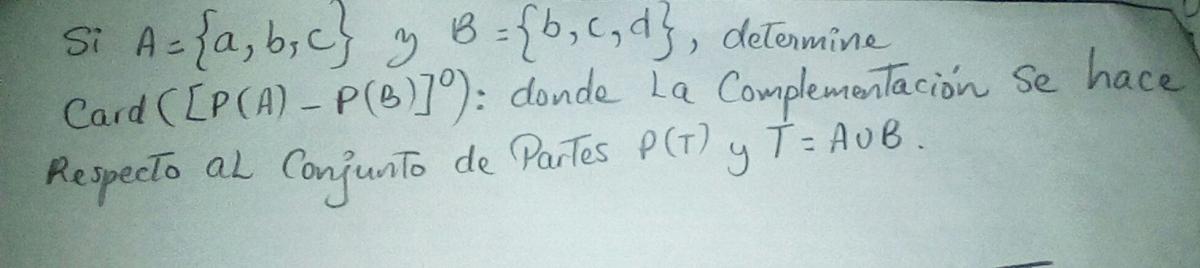 Si A = {a, b, c} y B = {b, c, d}, determine
Card ([P(A) - P(B)]⁰): donde La Complementación se hace
Respecto aL Conjunto de Partes P(T) y T = A∪B.